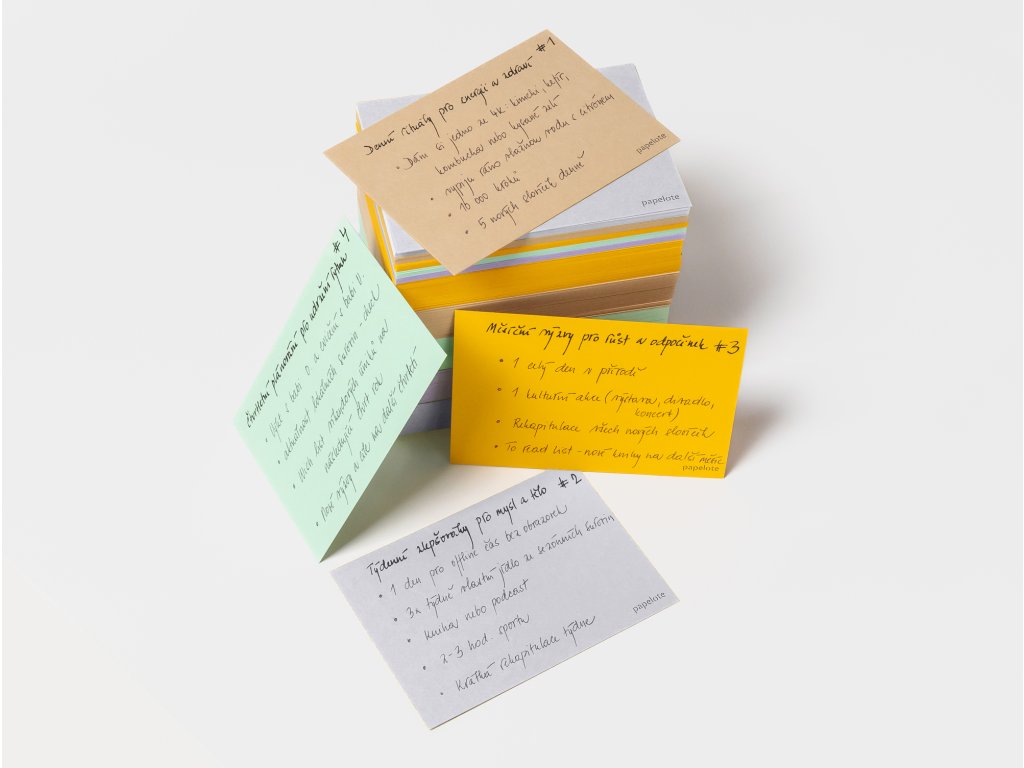 Denní rituály pro energii a zdraví #1
• Dám si jedno ze 4K: kimchi, kefír,
kombucha nebo kysané zelí
• vypiju ráno vlažnou vodu s citrónem
• 10 000 kroků
• 5 nových slovíček denně
papelote
papelote
#4
Čtvrtletní plánování pro udržení rytmu
• Výlet s babi D. a cvičení s babi D.
• aktuálnost
check
• Mých best na
následující čtvrt rok
• Nové výzvy a cíle na další čtvrtletí
Měsíční výzvy pro růst a odpočinek #3
• 1 celý den v přírodě
• 1 kulturní akce (výstava, divadlo,
koncert)
• Rekapitulace všech nových slovíček
• To read list - nové knihy na další měsíc
papelote
Týdenní zlepšováky pro mysl a tělo #2
• 1 den pro offline čas bez obrazovek
• 3x týdně vlastní jídlo ze sezónních surovin
• kniha nebo podcast
• 2-3 hod. sportu
• Krátká rekapitulace týdne
papelote